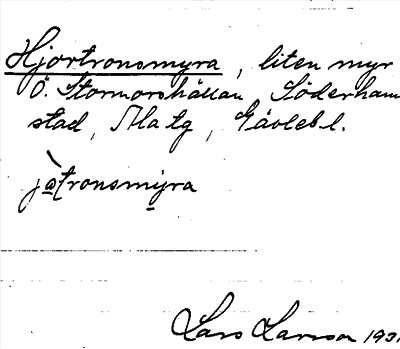 Hjortronsmyra, liten myr
Ö. Stormorshällan, Söderhamn
stad, Ala tg, Gävlebl.
jòtronsmyra
Lars Larsson 193